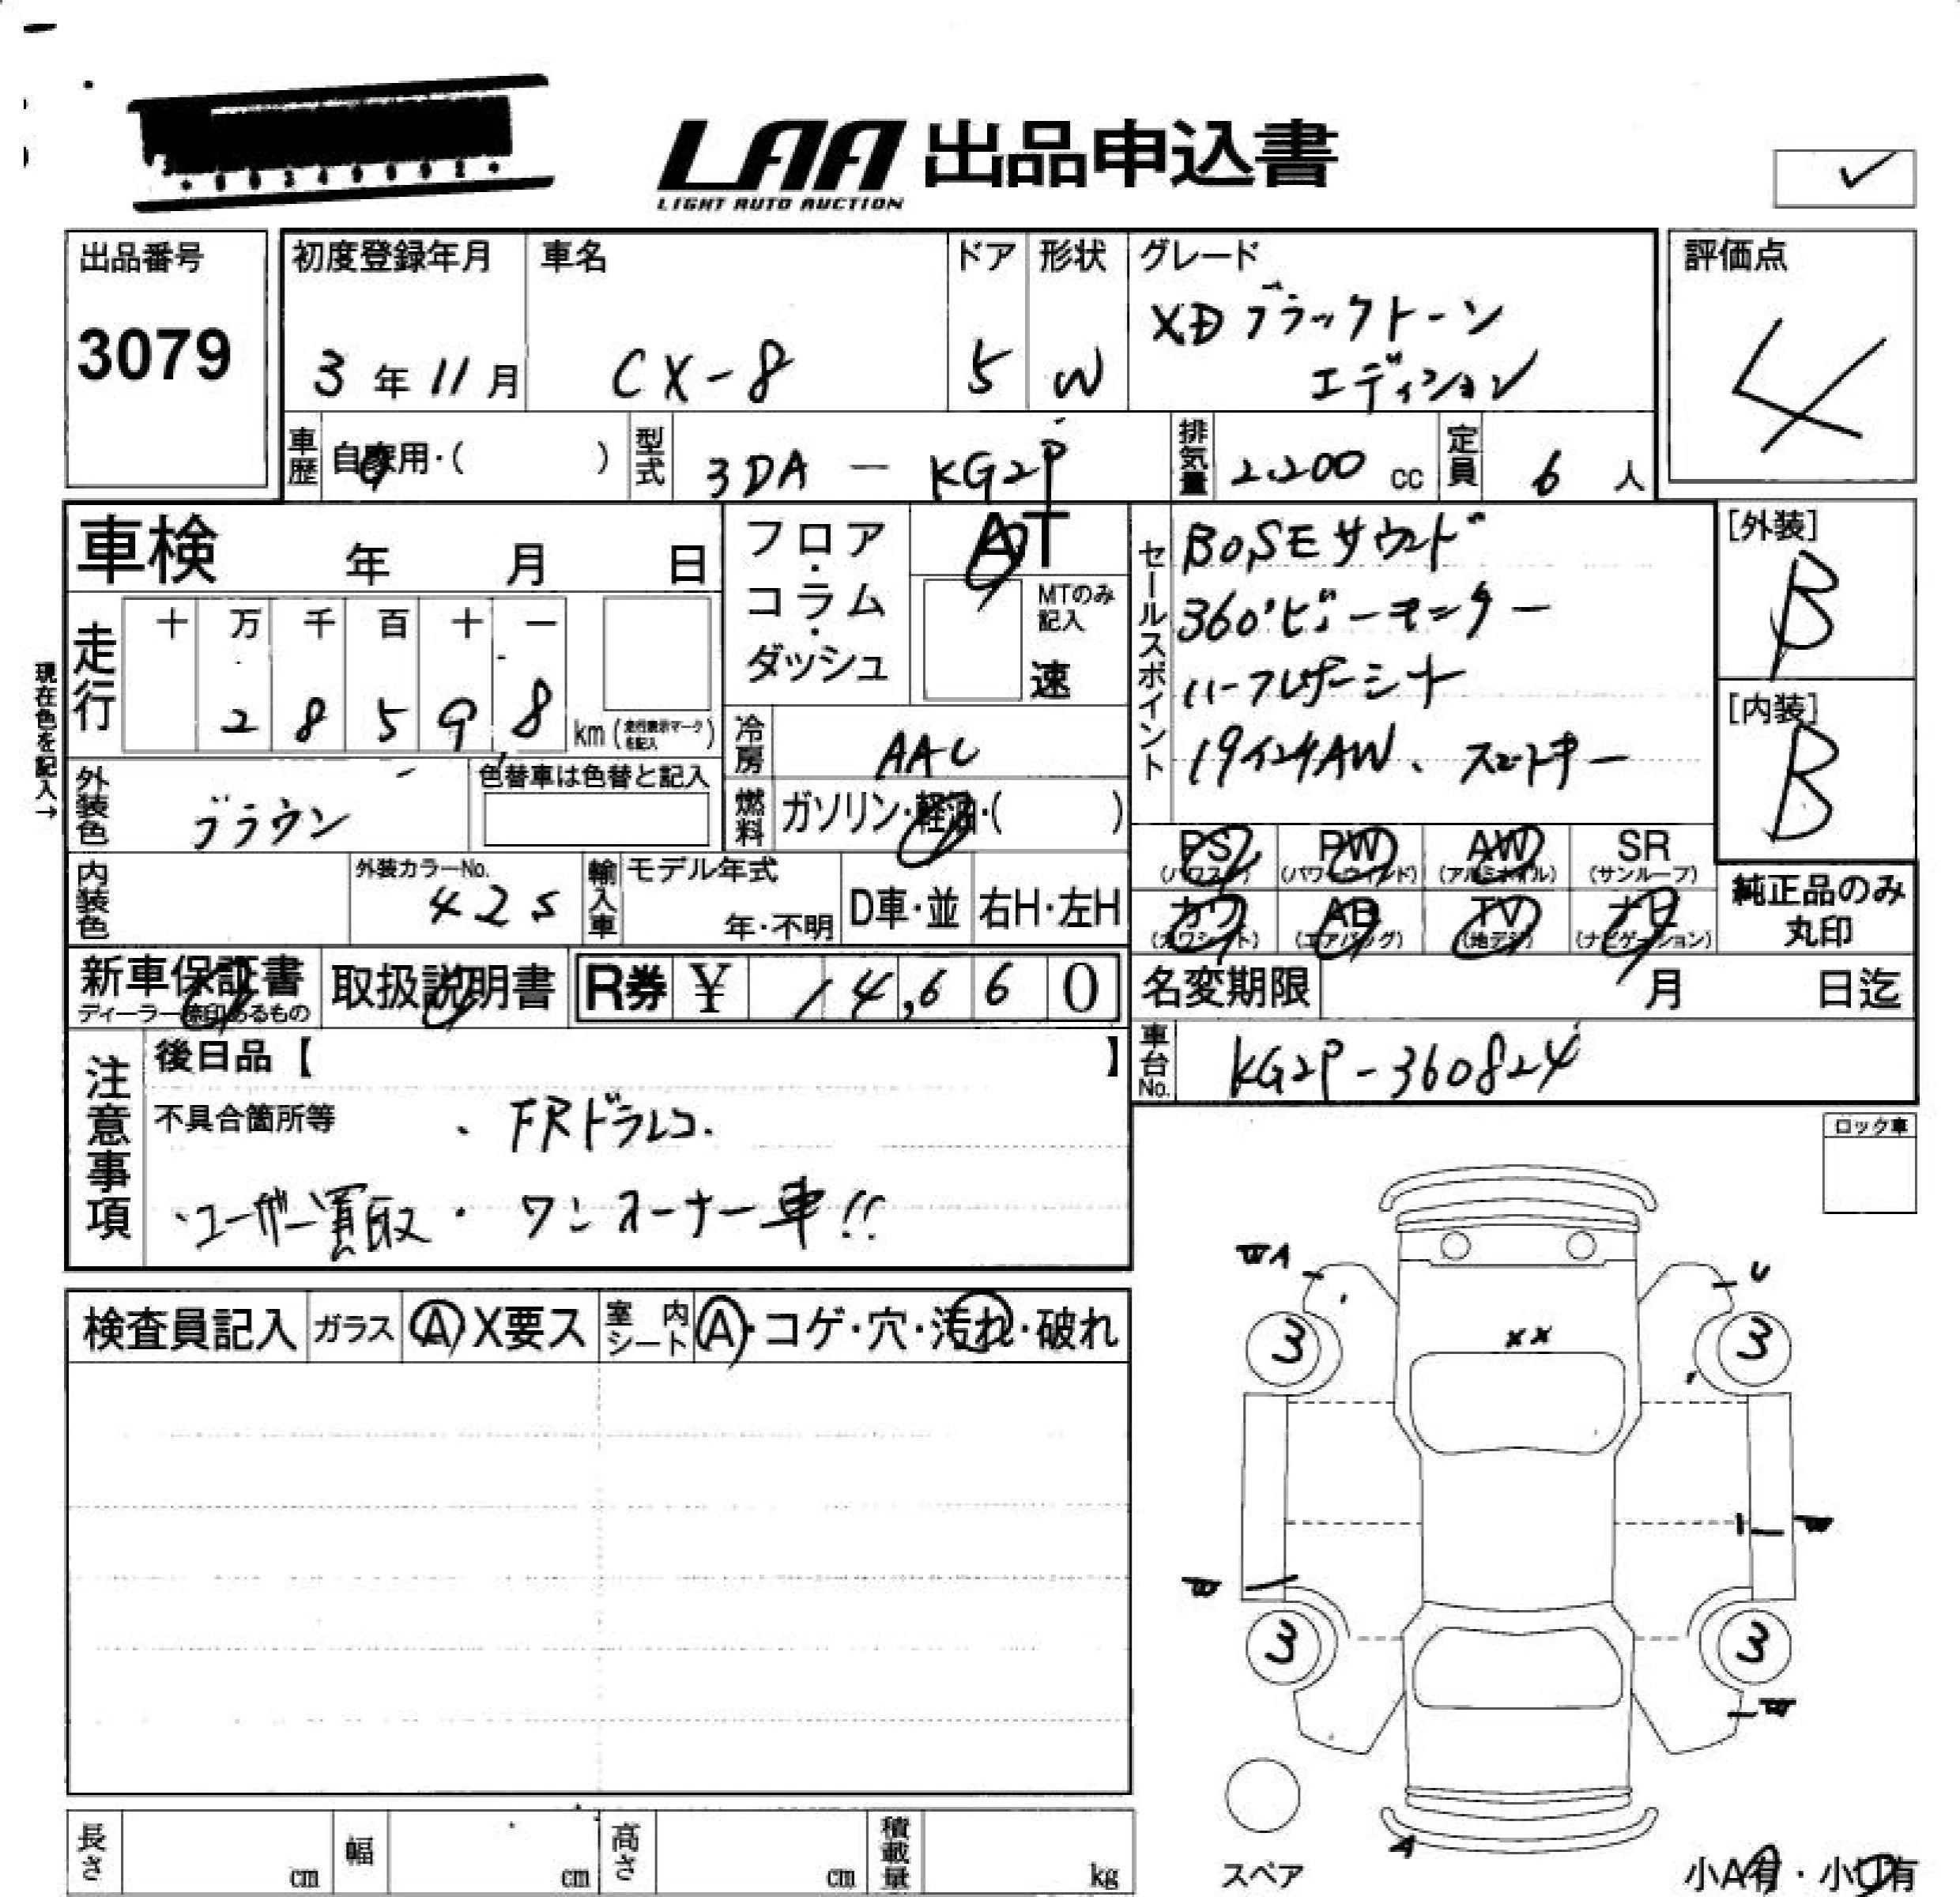 LAA 出品申込書
LIGHT AUTO AUCTION
✓
出品番号
3079
初度登録年月
3年11月
車名
CX-8
ドア
5
形状
W
グレード
XD ブラックトーン
エディション
評価点
4
車歴 自家用・( )
型式 3DA - KG2P
排気量 2.200 cc
定員 6 人
車検 年 月 日
フロア・コラム・ダッシュ
AT
MTのみ記入
速
セールスポイント
BOSEサウンド
360°ビューモニター
ハーフレザーシート
19インチAW、スマートキー
[外装]
B
[内装]
B
現在色を記入→
走行
十 万 千 百 十 一
2 8 5 9 8
km (走行表示マークを記入)
冷房 AAC
外装色 ブラウン
色替車は色替と記入
燃料 ガソリン・軽油・( )
PS (パワステ)
PW (パワーウィンド)
AW (アルミホイル)
SR (サンルーフ)
カワ (カワシート)
AB (エアバッグ)
TV (地デジ)
ナビ (ナビゲーション)
純正品のみ丸印
内装色
外装カラーNo.
42S
輸入車
モデル年式
年・不明
D車・並
右H・左H
新車保証書
ディーラー捺印あるもの
取扱説明書
R券 ¥ 14,660
名変期限 月 日迄
車台No. KG2P-360824
注意事項
後日品【 】
不具合箇所等
・FRドラレコ.
・ユーザー買取・ワンオーナー車!!
ロック車
検査員記入
ガラス A X要ス
室内シート A・コゲ・穴・汚れ・破れ
WA
U
XX
3
3
W
W
3
3
W
A
スペア
小A有・小U有
長さ cm
幅 cm
高さ cm
積載量 kg